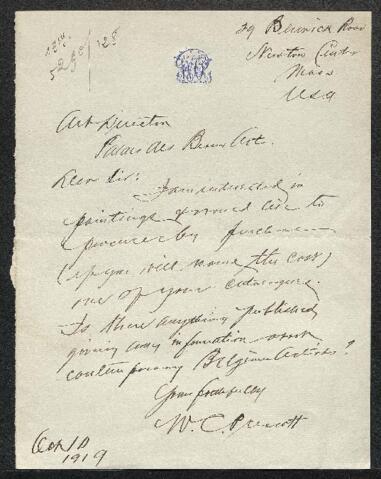 39 Berwick Road
Newton Centre
Mass
USA
Art Director
Palais des Beaux Arts.
Dear Sir: I am interested in
paintings & would like to
procure by purchase
(if you will name the cost)
one of your catalogues.
Is there anything published
giving any information about
contemporary Belgian Artists?
Yours faithfully
W. C. Prescott
Oct 10
1919